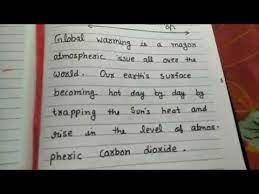 Global warming is a major
atmospheric issue all over the
world. Our earth's surface
becoming hot day by day by
trapping the Sun's heat and
rise in the level of atmos-
pheric carbon dioxide.